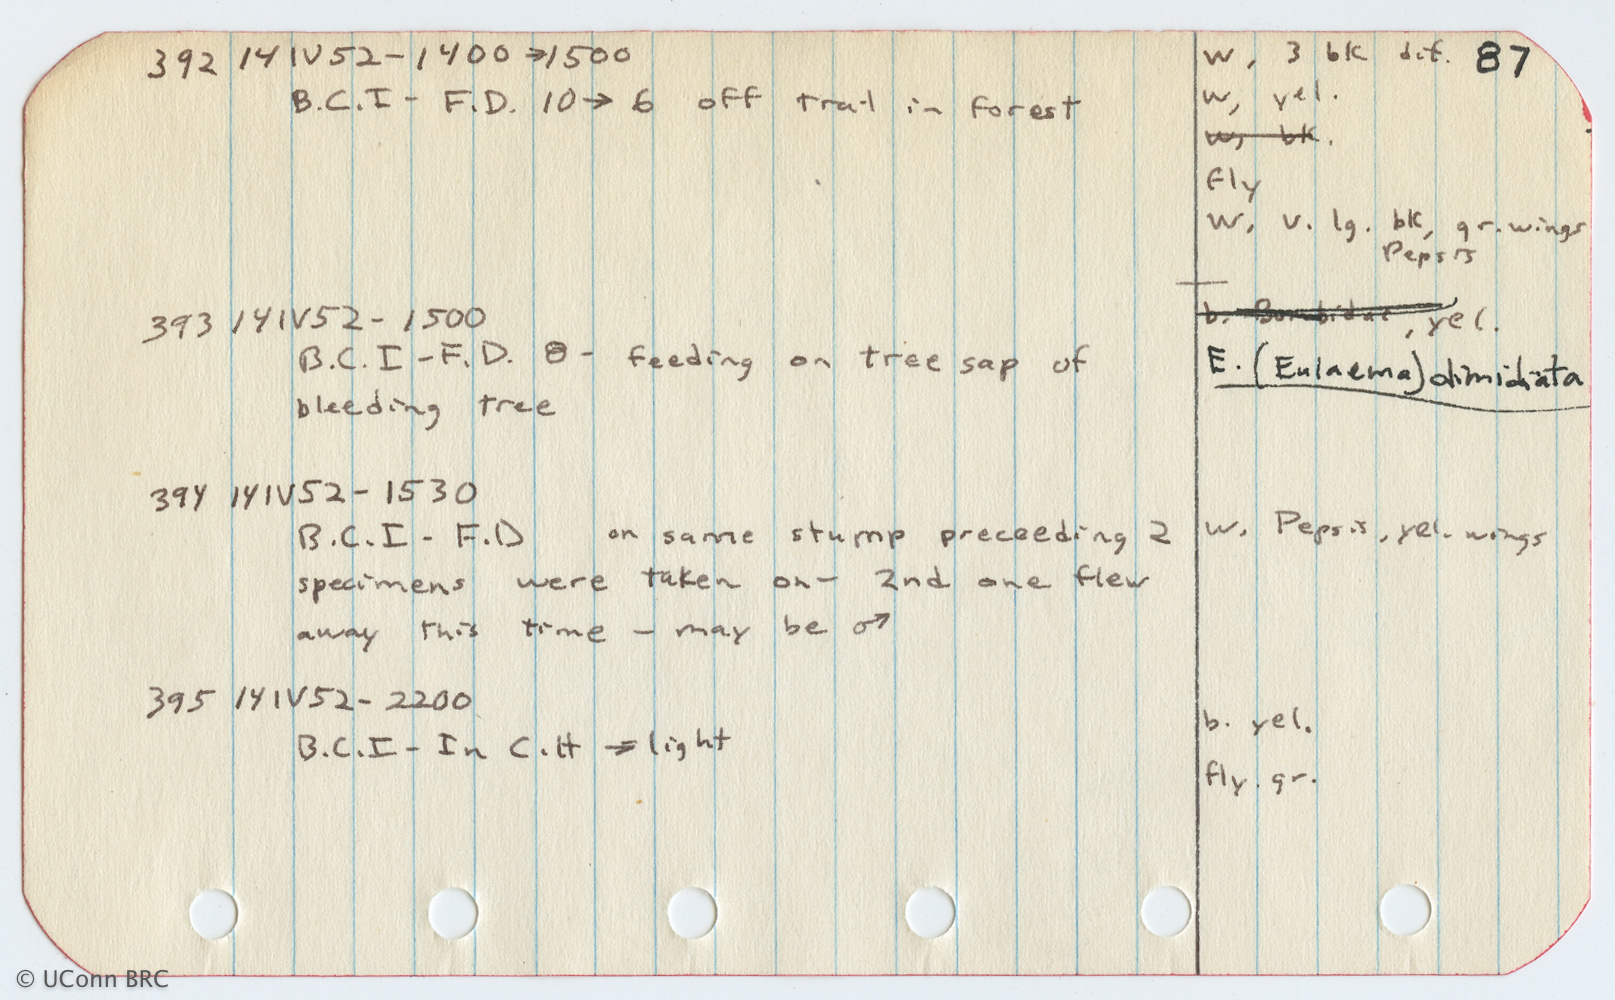 392 14IV52-1400→1500
B.C.I - F.D. 10→6 off trail in forest
w, 3 bk dif. 87
w, yel.
w, bk.
fly
w, v. lg. bk, gr. wings
Pepsis
393 14IV52-1500
B.C.I - F.D. 8 - feeding on tree sap of
bleeding tree
b. Bombidae, yel.
E. (Eulaema) dimidiata
394 14IV52-1530
B.C.I - F.D on same stump preceeding 2
specimens were taken on - 2nd one flew
away this time - may be ♂
w. Pepsis, yel. wings
395 14IV52-2200
B.C.I - In C.H → light
b. yel.
fly. gr.
© UConn BRC